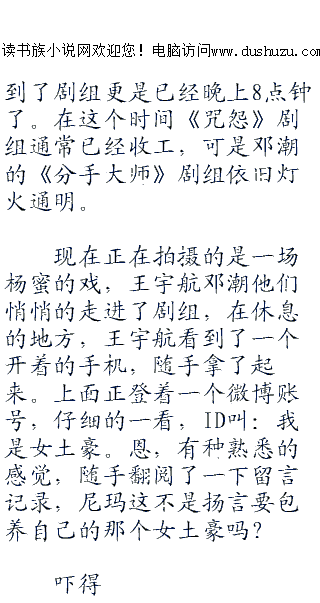 读书族小说网欢迎您！电脑访问www.dushuzu.com
到了剧组更是已经晚上8点钟
了。在这个时间《咒怨》剧
组通常已经收工，可是邓潮
的《分手大师》剧组依旧灯
火通明。
现在正在拍摄的是一场
杨蜜的戏，王宇航邓潮他们
悄悄的走进了剧组，在休息
的地方，王宇航看到了一个
开着的手机，随手拿了起
来。上面正登着一个微博账
号，仔细的一看，ID叫：我
是女土豪。恩，有种熟悉的
感觉，随手翻阅了一下留言
记录，尼玛这不是扬言要包
养自己的那个女土豪吗？
吓得